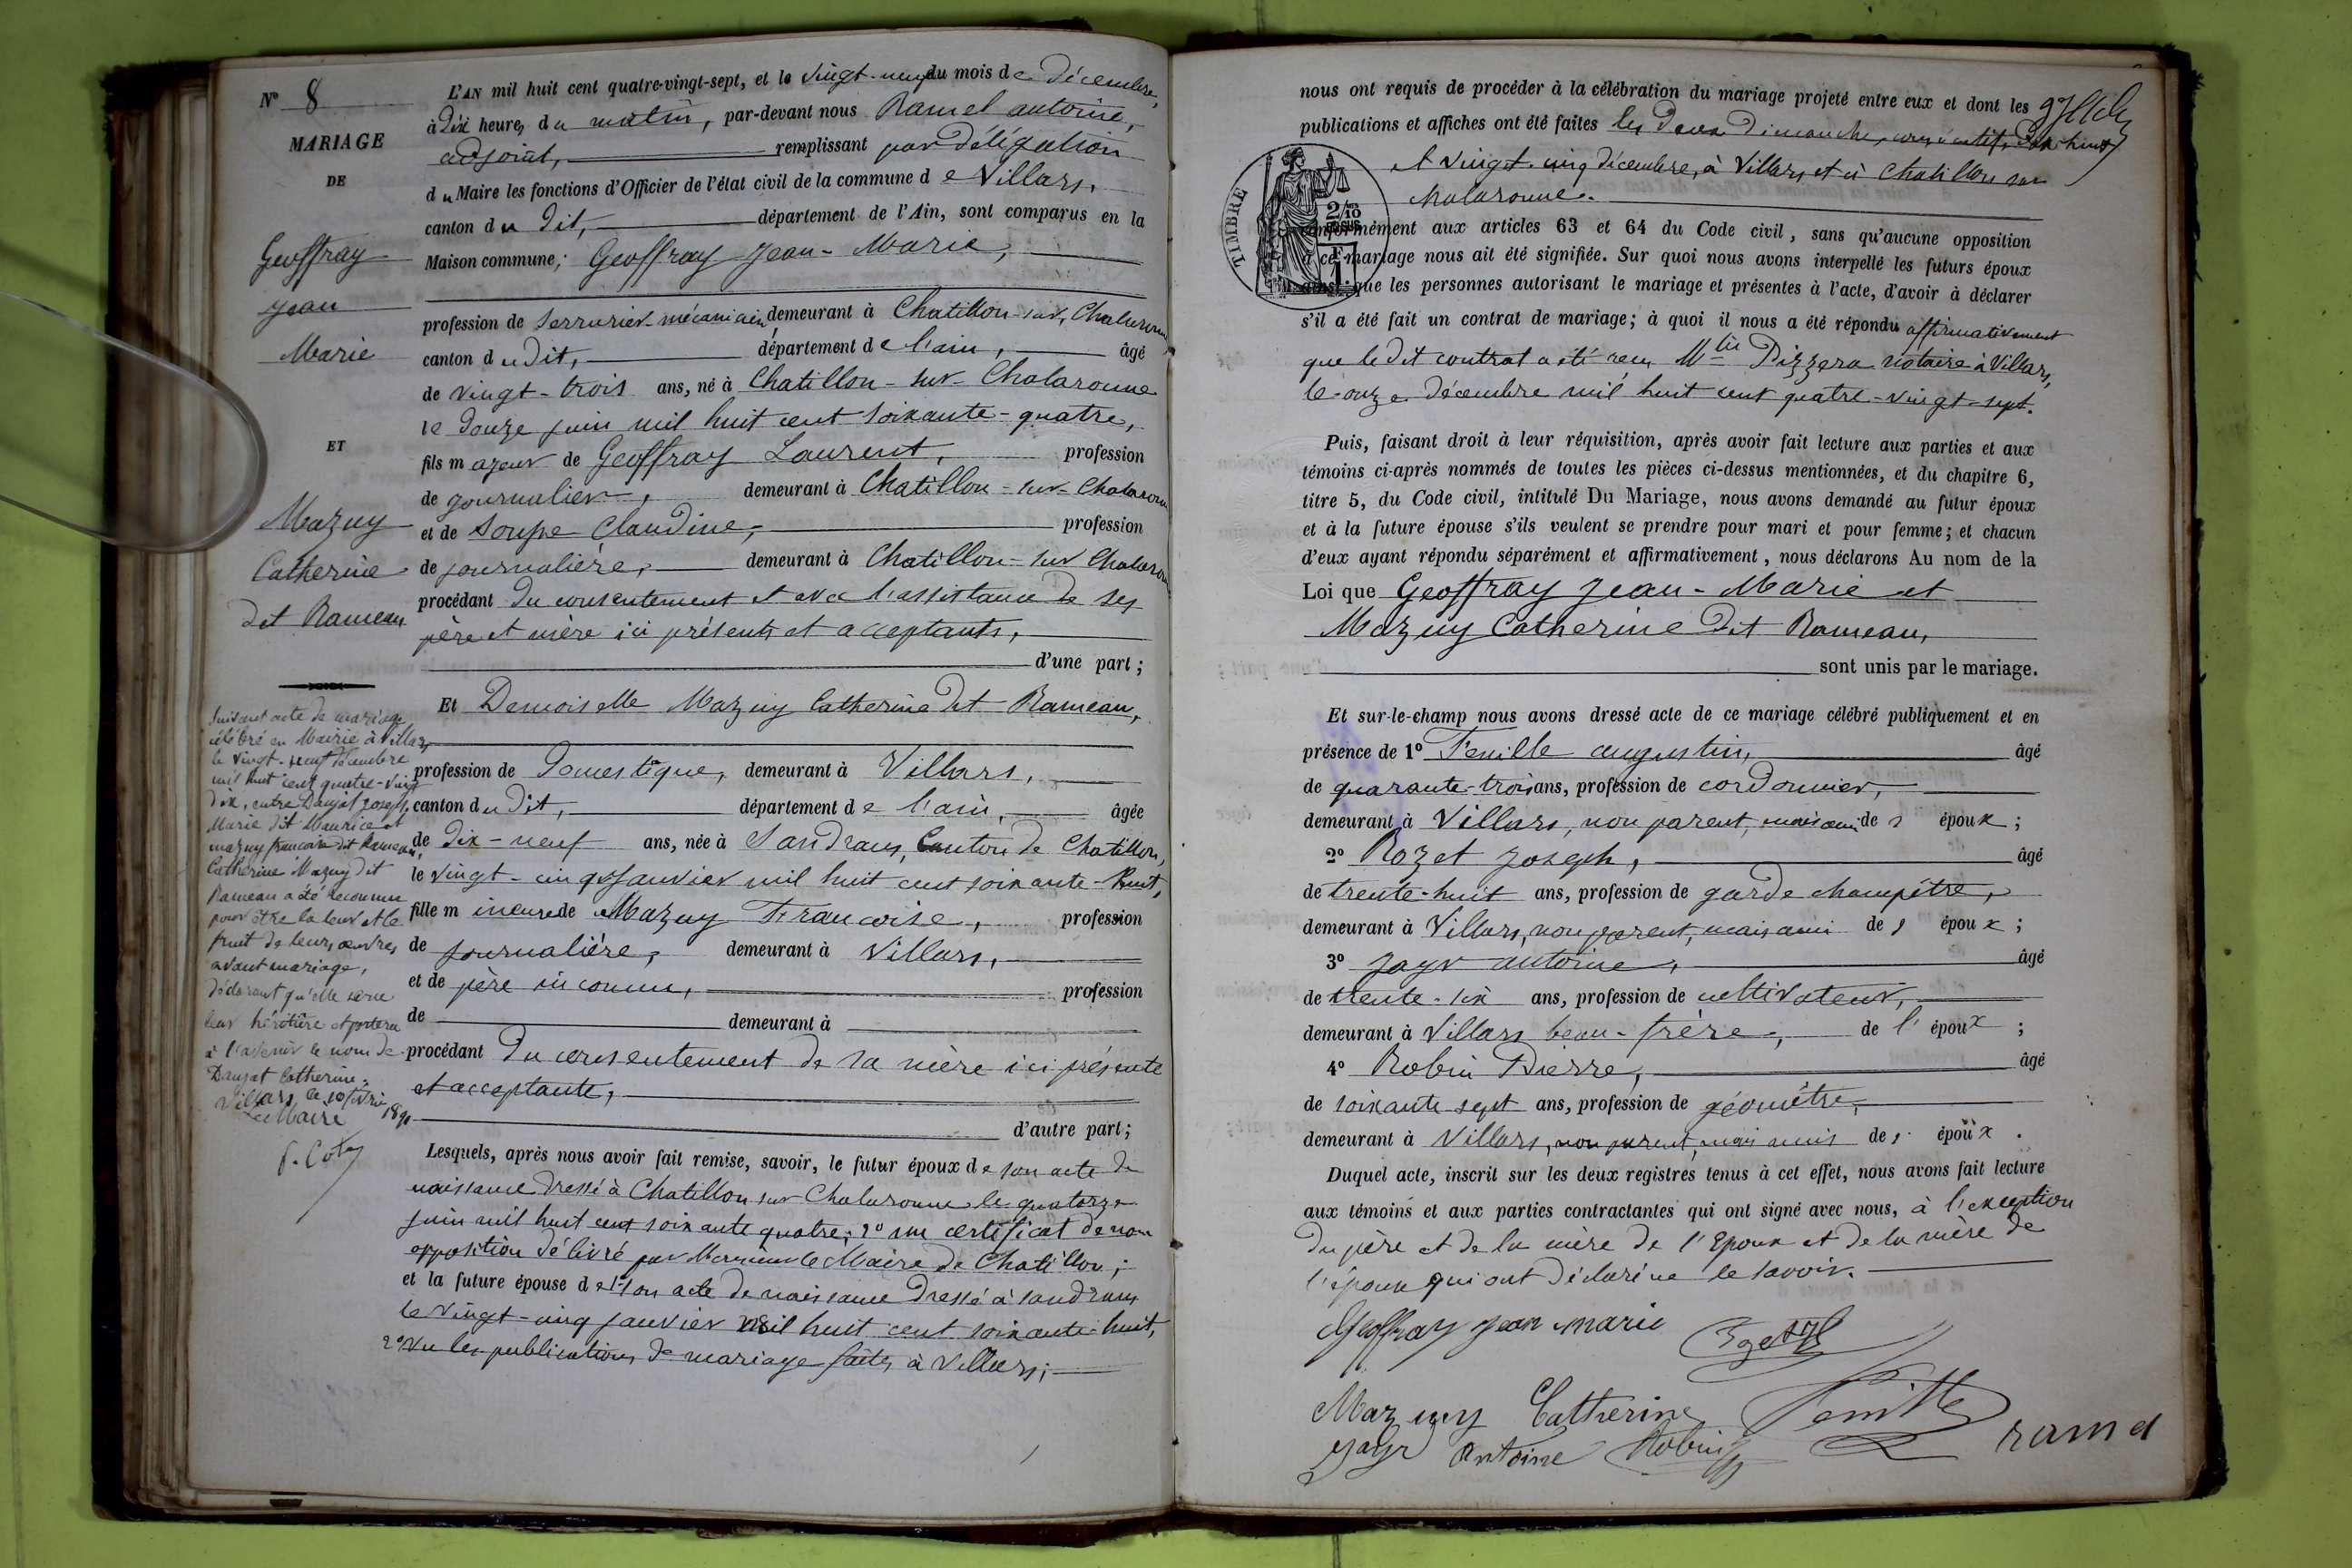 N° 8
MARIAGE
DE
Geoffray
Jean
Marie
ET
Mazuy
Catherine
dit Rameau
Suivant acte de mariage
célébré en Mairie à Villars
le vingt-neuf décembre
mil huit cent quatre-vingt
dix, entre Daujat Joseph,
Marie dit Maurice et
mazuy françoise dit Rameau,
Catherine Mazuy dit
Rameau a été reconnue
pour être la leur et le
fruit de leurs œuvres
avant mariage,
déclarant qu'elle sera
leur héritière et portera
à l'avenir le nom de
Daujat Catherine.
Villars, le 10
Le Maire
L'AN mil huit cent quatre-vingt-sept, et le vingt-neuf du mois de décembre,
à dix heures du matin, par-devant nous Ramel antoine,
adjoint, remplissant par délégation
du Maire les fonctions d'Officier de l'état civil de la commune de Villars,
canton du dit, département de l'Ain, sont comparus en la
Maison commune; Geoffray Jean-Marie,
profession de Serrurier-mécanicien, demeurant à Chatillon-sur-Chalaronne,
canton du dit, département de l'ain, âgé
de vingt-trois ans, né à Chatillon-sur-Chalaronne
le douze juin mil huit cent soixante-quatre,
fils majeur de Geoffray Laurent, profession
de journalier, demeurant à Chatillon-sur-Chalaronne
et de Soupe Claudine, profession
de journalière, demeurant à Chatillon-sur Chalaronne
procédant du consentement et avec l'assistance de ses
père et mère ici présents et acceptants,
d'une part;
Et Demoiselle Mazuy Catherine dit Rameau,
profession de Domestique, demeurant à Villars,
canton du dit, département de l'ain, âgée
de dix-neuf ans, née à Sandrans, Canton de Chatillon,
le vingt-cinq Janvier mil huit cent soixante-huit,
fille mineure de Mazuy Françoise, profession
de journalière, demeurant à Villars,
et de père inconnu, profession
de demeurant à
procédant du consentement de sa mère ici présente
et acceptante,
d'autre part;
Lesquels, après nous avoir fait remise, savoir, le futur époux de son acte de
naissance dressé à Chatillon sur Chalaronne le quatorze
juin mil huit cent soixante quatre; 2° un certificat de non
opposition délivré par Monsieur le Maire de Chatillon;
et la future épouse de 1° son acte de naissance dressé à Sandrans
le vingt-cinq janvier mil huit cent soixante-huit,
2° vu les publications de mariage faites à Villars;
nous ont requis de procéder à la célébration du mariage projeté entre eux et dont les
publications et affiches ont été faites les deux Dimanches consécutifs, Dix huit
et vingt-cinq décembre, à Villars et à Chatillon sur
Chalaronne.
TIMBRE
2/10
conformément aux articles 63 et 64 du Code civil, sans qu'aucune opposition
à ce mariage nous ait été signifiée. Sur quoi nous avons interpellé les futurs époux
ainsi que les personnes autorisant le mariage et présentes à l'acte, d'avoir à déclarer
s'il a été fait un contrat de mariage; à quoi il nous a été répondu affirmativement
que le dit contrat a été reçu Mtre Pizzera Notaire à Villars,
le onze décembre mil huit cent quatre-vingt-sept.
Puis, faisant droit à leur réquisition, après avoir fait lecture aux parties et aux
témoins ci-après nommés de toutes les pièces ci-dessus mentionnées, et du chapitre 6,
titre 5, du Code civil, intitulé Du Mariage, nous avons demandé au futur époux
et à la future épouse s'ils veulent se prendre pour mari et pour femme; et chacun
d'eux ayant répondu séparément et affirmativement, nous déclarons Au nom de la
Loi que Geoffray Jean-Marie et
Mazuy Catherine dit Rameau,
sont unis par le mariage.
Et sur-le-champ nous avons dressé acte de ce mariage célébré publiquement et en
présence de 1° Feuille augustin, âgé
de quarante-trois ans, profession de cordonnier,
demeurant à Villars, non parent, mais ami de s époux;
2° Rozet Joseph, âgé
de trente-huit ans, profession de garde champêtre,
demeurant à Villars, non parent, mais ami de s époux;
3° Jayr antoine, âgé
de trente-six ans, profession de cultivateur,
demeurant à Villars beau-frère, de l'époux;
4° Robin Pierre, âgé
de soixante sept ans, profession de géomètre,
demeurant à Villars, non parent, mais amis de s époux.
Duquel acte, inscrit sur les deux registres tenus à cet effet, nous avons fait lecture
aux témoins et aux parties contractantes qui ont signé avec nous, à l'exception
du père et de la mère de l'Epoux et de la mère de
l'épouse qui ont déclaré ne le savoir.
Geoffray Jean Marie
Mazuy Catherine Feuille
Jayr Antoine Robin ramel